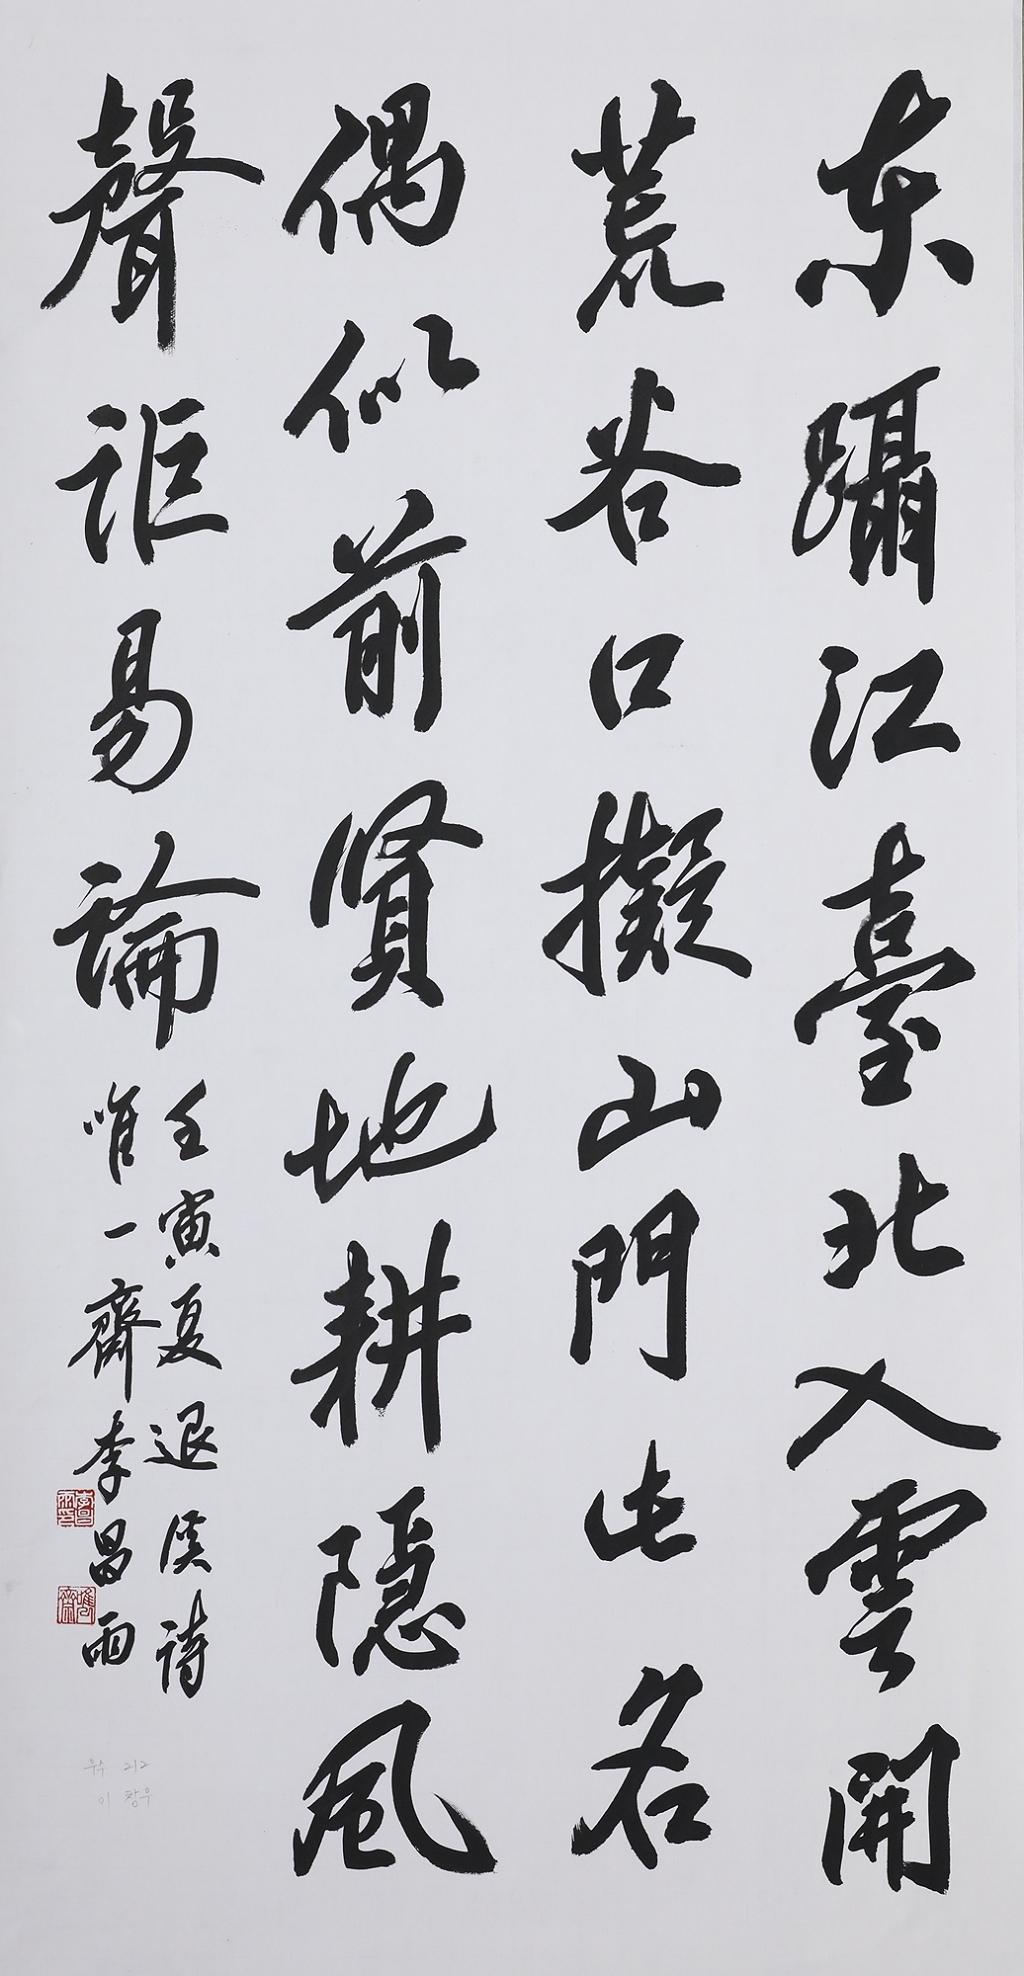 东躡江臺北入雲開
荒谷口擬山門此名
偶似前賢地耕隱風
聲詎易論
壬寅夏退溪詩
唯一齋李昌雨
우수 212
이창우